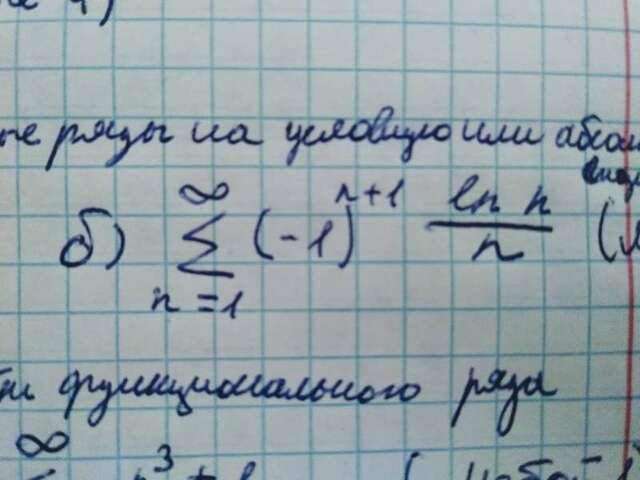 ряды на условную или абсол
б) ∑ (-1)^{n+1} ln n / n (
∞
n = 1
функционального ряда
∞